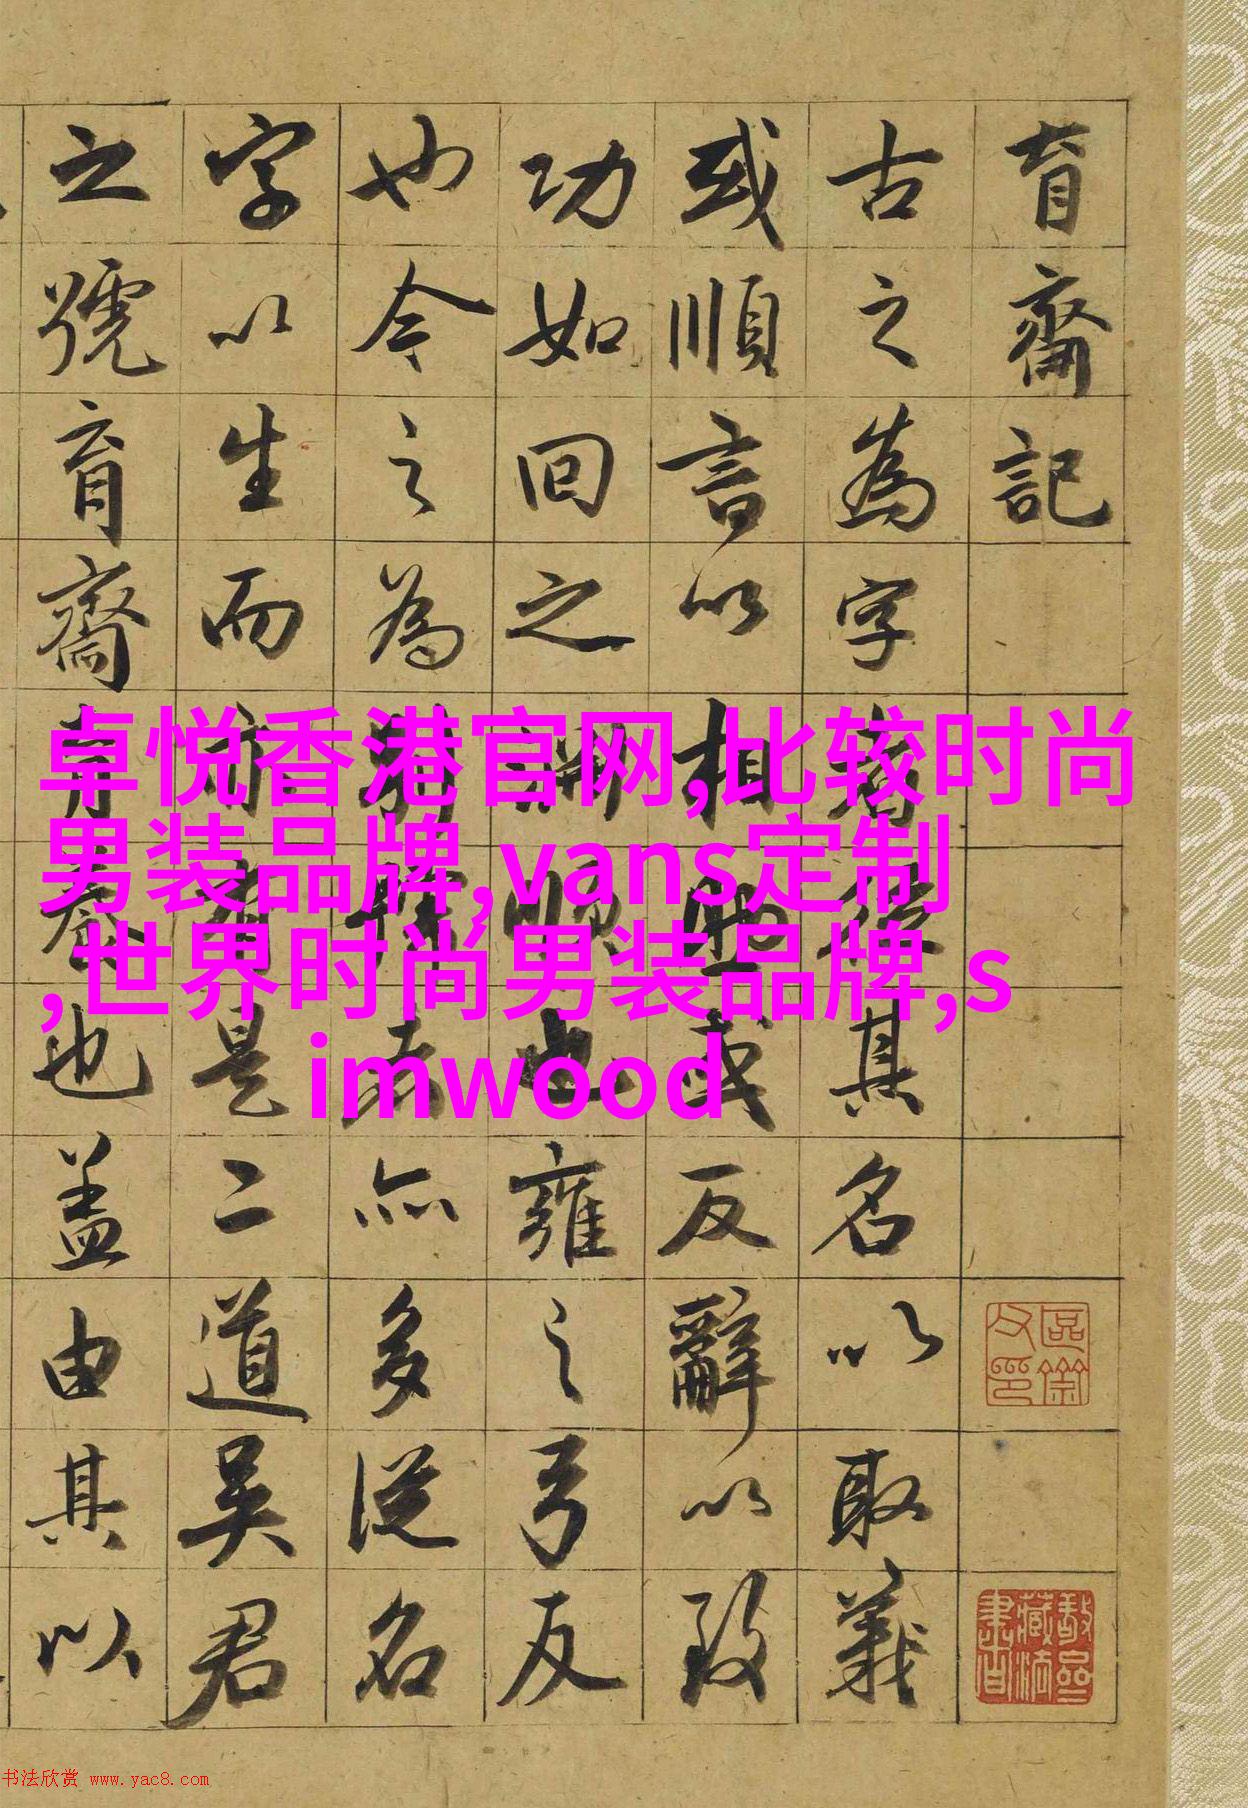 育齋記
古之為字者其名以取義
或順言以相或反辭以致
功如回之淵順也雍之弓反
也令之為別號者亦多從名
字以生而亦有是二道吳君
之號育齋也盖由其以
卓悦香港官网,比较时尚
男装品牌,vans定制
,世界时尚男装品牌,s
imwood
书法欣赏 www.yac8.com